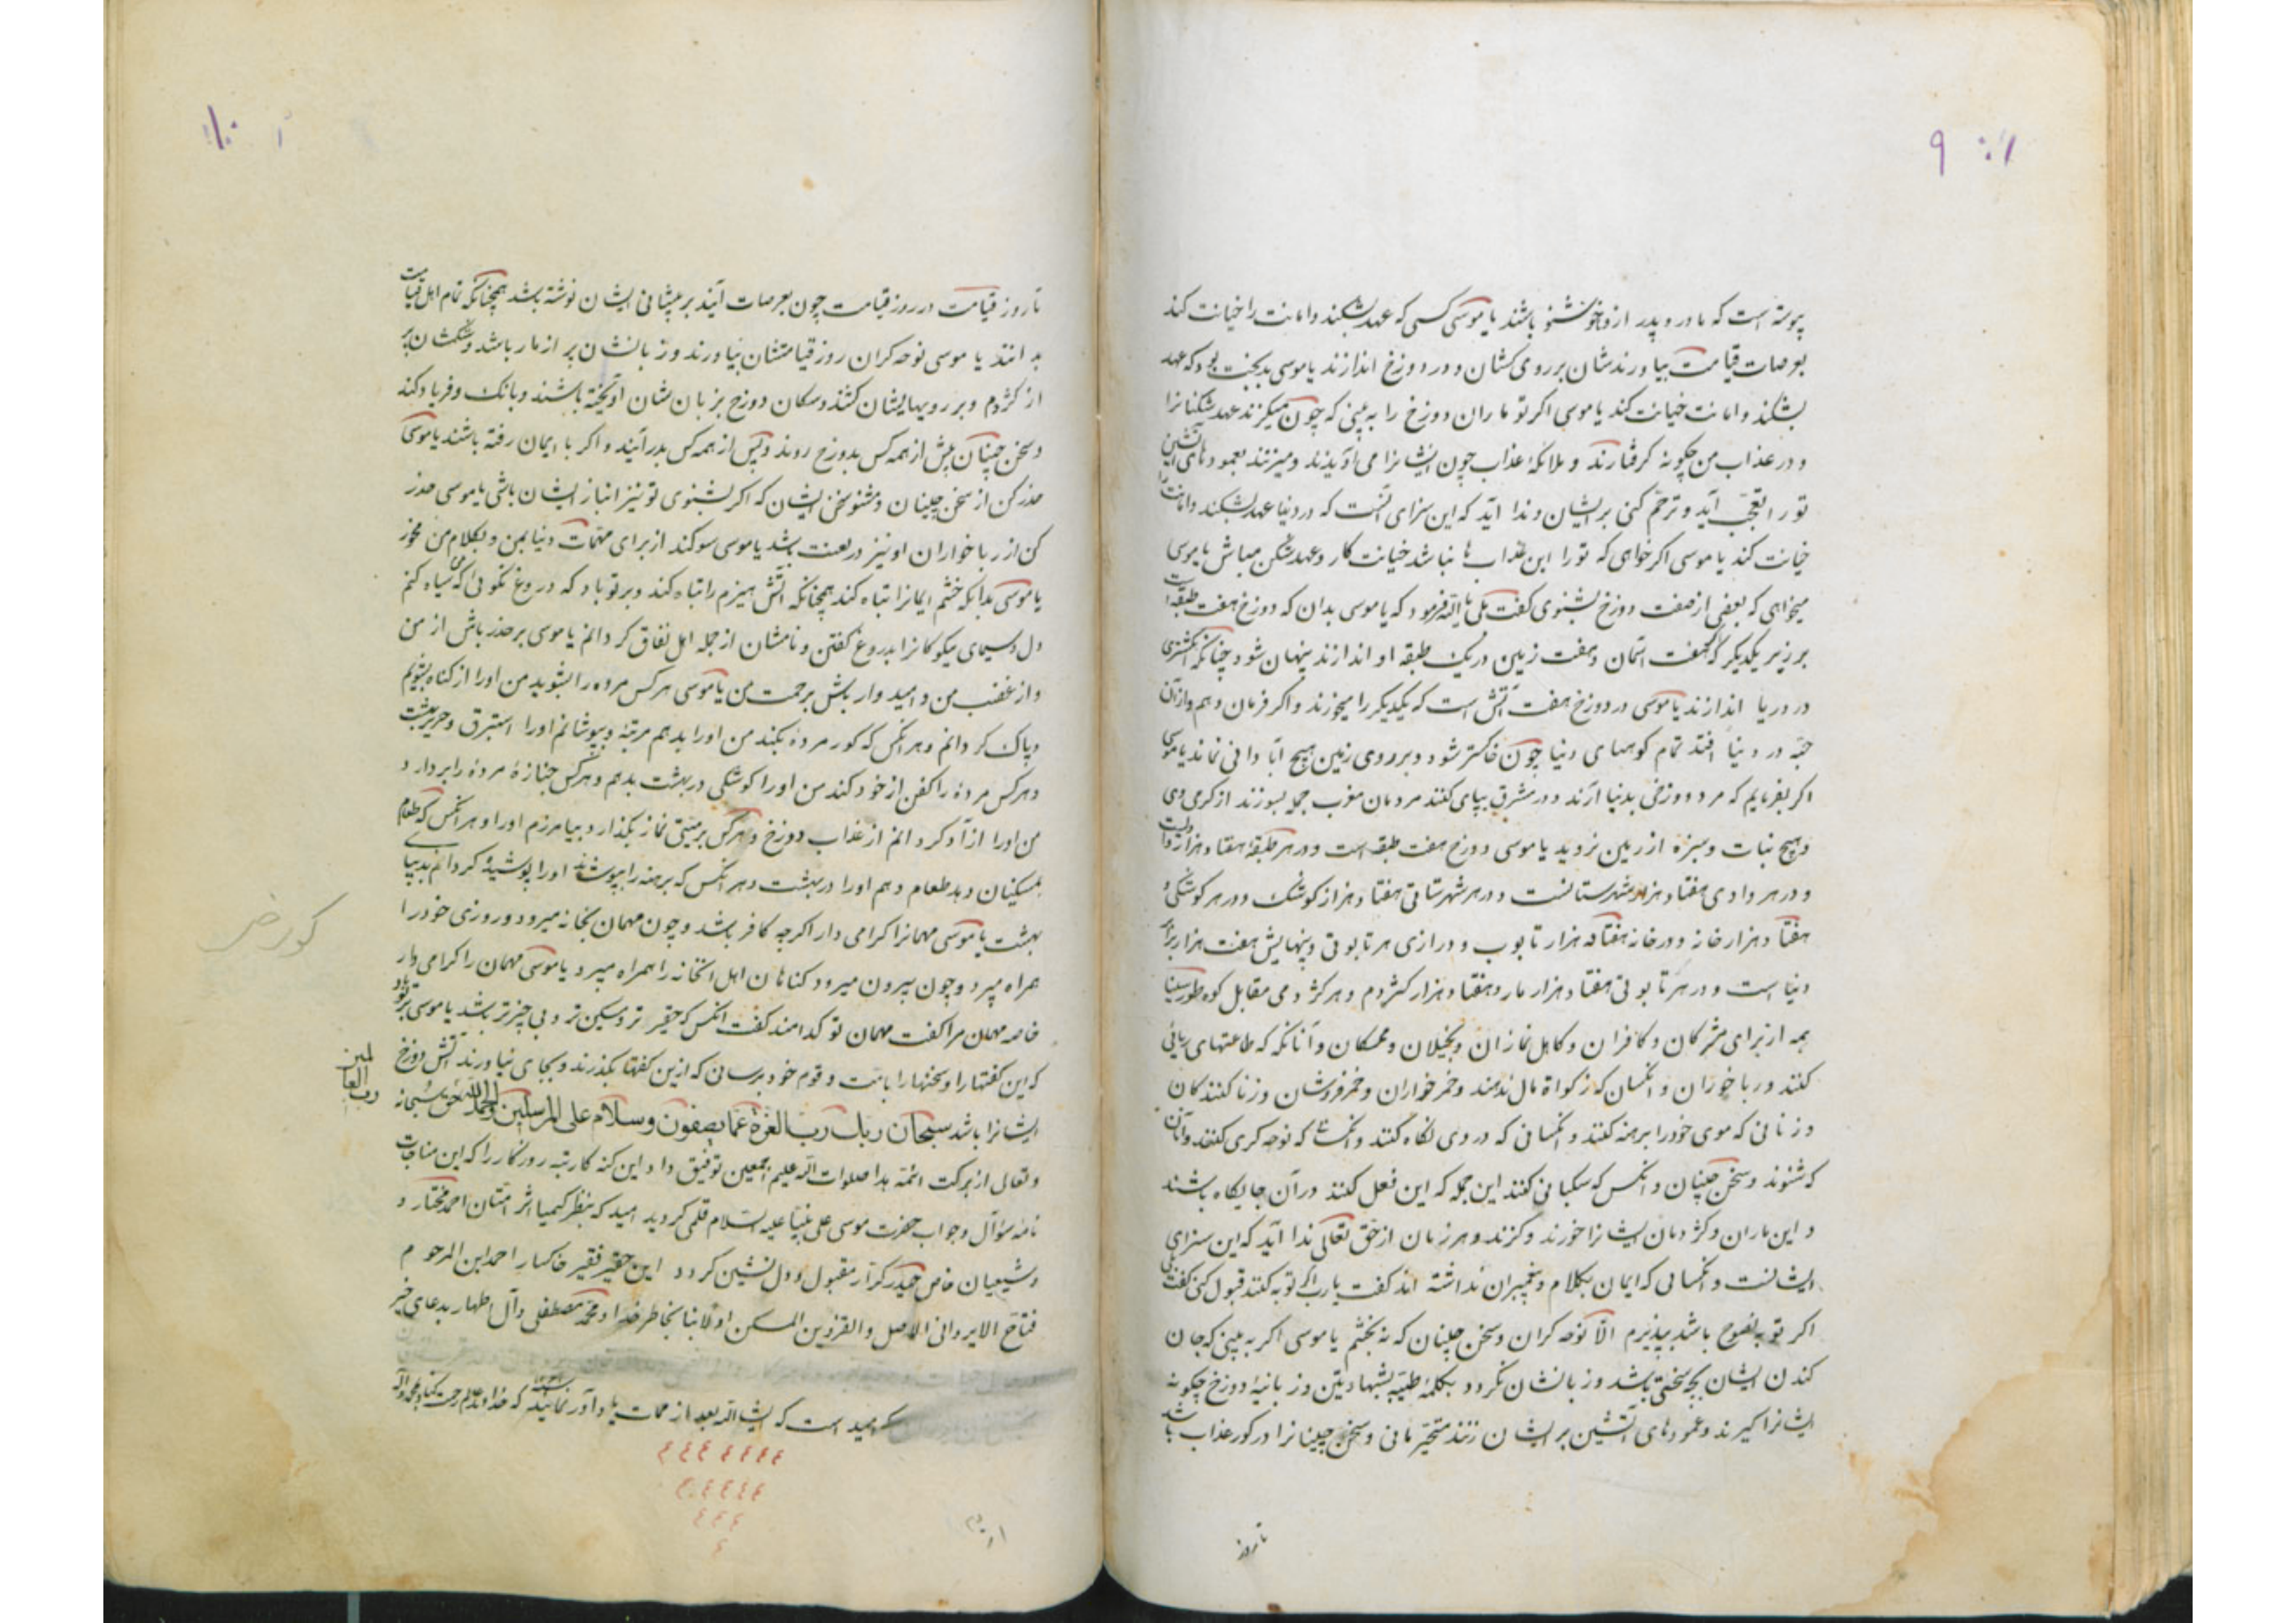 ۹
پیوسته است که مادر و پدر ازو خوشنو باشند یا موسی کسی که عهد بشکند و امانت را خیانت کند
بعرصات قیامت بیاورندشان بر روی کشان و در دوزخ اندازند یا موسی بدبخت بود که عهد
بشکند و امانت خیانت کند یا موسی اکر تو ماران دوزخ را به بینی که چون میکزند عهد شکنانرا
و در عذاب من چکونه کرفتارند و ملائکهٔ عذاب چون ایشانرا می آویزند و میزنند بعمودهای آتشین
تو را تعجّب آید و ترحّم کنی بر ایشان و ندا آید که این سزای آنست که در دنیا عهد بشکند و امانت را
خیانت کند یا موسی اکر خواهی که تو را این عذاب ها نباشد خیانت کار و عهد شکن مباش یا موسی
میخواهی که بعضی از صفت دوزخ بشنوی کفت بلی یا الله فرمود که یا موسی بدان که دوزخ هفت طبقه است
بر زیر یکدیکر که هفت آسمان و هفت زمین در یک طبقه او اندازند پنهان شود چنانکه انکشتری
در دریا اندازند یا موسی در دوزخ هفت آتش است که یکدیکر را میخورند و اکر فرمان دهم و از آن
حبّه در دنیا افتد تمام کوههای دنیا چون خاکستر شود و بر روی زمین هیچ آبادانی نماند یا موسی
اکر بفرمایم که مرد دوزخی بدنیا آرند و در مشرق بپای کنند مردمان مغرب جمله بسوزند از کرمی وی
و هیچ نبات و سبزه از زمین نروید یا موسی دوزخ هفت طبقه است و در هر طبقهٔ هفتاد هزار وادیست
و در هر وادی هفتاد هزار شهرستانست و در هر شهرستانی هفتاد هزار کوشک و در هر کوشکی
هفتاد هزار خانه و در خانه هفتاد هزار تابوب و درازی هر تابوتی و پنهایش هفت هزار برابر
دنیا است و در هر تابوتی هفتاد هزار مار و هفتاد هزار کژدم و هر کژدمی مقابل کوه طور سینا
همه از برای مشرکان و کافران و کاهل نمازان و بخیلان و ممسکان و آنانکه که طاعتهای ریائی
کنند و ربا خوران و انکسان که زکواة مال ندهند و خمر خواران و خمر فروشان و زنا کنندکان
و زنانی که موی خود را برهنه کنند و انکسانی که در وی نکاه کنند و انکسان که نوحه کری کنند و آنان
که شنوند و سخن چینان و انکس که سکبانی کنند این جمله که این فعل کنند در آن جایکاه باشند
و این ماران و کژدمان ایشانرا خورند و کزند و هر زمان از حق تعالی ندا آید که این سزای
ایشانست و انکسانی که ایمان بکلام و پیغمبران نداشته اند کفت یا رب اکر توبه کنند قبول کنی کفت بلی
اکر توبه نصوح باشد بپذیرم الّا نوحه کران و سخن چینان که نه بخشم یا موسی اکر به بینی که جان
کندن ایشان بچه سختی باشد و زبانشان نکردد بکلمهٔ طیّبه بشهادیتن و زبانیهٔ دوزخ چکونه
ایشانرا کیرند و عمودهای آتشین بر ایشان زنند متحیّر مانی و سخن چینانرا در کور عذاب باشد
تا روز
۱۰
تا روز قیامت در روز قیامت چون بعرصات آیند بر پیشانی ایشان نوشته باشد همچنانکه تمام اهل قیامت
بدانند یا موسی نوحه کران روز قیامتشان بیاورند و زبانشان پر از مار باشد و شکمشان پر
از کژدم و بر رویهایشان کشند و سکان دوزخ بزبان شان آویخته باشند و بانک و فریاد کند
و سخن چینان پیش از همه کس بدوزخ روند و پس از همه کس بدر آیند و اکر با ایمان رفته باشند یا موسی
حذر کن از سخن چینان و مشنو سخن ایشان که اکر بشنوی تو نیز انباز ایشان باشی یا موسی حذر
کن از ربا خواران او نیز در لعنت باشد یا موسی سوکند از برای مهمّات دنیا بمن و بکلام من مخور
یا موسی بدانکه خشم ایمانرا تباه کند همچنانکه آتش هیزم را تباه کند و بر تو باد که دروغ نکوئی که من سیاه کنم
دل و سیمای نیکوکانرا بدروغ کفتن و نامشان از جمله اهل نفاق کردانم یا موسی بر حذر باش از من
و از غضب من و امید وار باش برحمت من یا موسی هر کس مرده را بشوید من او را از کناه بشویم
و پاک کردانم و هر انکس که کور مردهٔ بکند من او را بدهم مرتبهٔ و بپوشانم او را استبرق و حریر بهشت
و هر کس مردهٔ را کفن از خود کند من او را کوشکی در بهشت بدهم و هر کس جنازهٔ مردهٔ را بردارد
من او را ازآد کردانم از عذاب دوزخ و هر کس بر میّتی نماز بکذارد بیامرزم او را و هر انکس که طعام
بمسکینان دهد طعام دهم او را در بهشت و هر انکس که برهنه را بپوشاند او را پوشیدهٔ کردانم بدیبای
بهشت یا موسی مهمانرا کرامی دار اکرچه کافر باشد و چون مهمان بخانه میرود و روزی خود را
همراه میبرد و چون بیرون میرود کناهان اهل انخانه را همراه میبرد یا موسی مهمان را کرامی دار
خاصه مهمان مرا کفت مهمان تو کدامند کفت انکس که حقیرتر و مسکین تر و بی چیزتر باشد یا موسی بر تو باد
که این کفتها را و سخنها را بامّت و قوم خود برسانی که ازین کفتها بکذرند و بجای نیاورند آتش دوزخ
ایشانرا باشد سبحان ربك ربّ العزّة عمّا یصفون وسلام علی المرسلین والحمد لله رب العالمین حق سبحانه
و تعالی از برکت ائمّه هدا صلوات الله علیهم اجمعین توفیق داد این کنه کار تبه روزکار را که این مناجات
نامه سؤآل و جواب حضرت موسی علی نبیّنا علیه السّلام قلمی کردید امید که بنظر کیمیا اثر امّتان احمد مختار و
و شیعیان خاص حیدر کرّار مقبول و دل نشین کردد این حقیر فقیر خاکسار احمد ابن المرحوم
فتاح الایروانی الاصل و القزوین المسکن اولا بنا بخاطر خدا و محمّد مصطفی و آل طهار بدعای خیر
که امید است که انشاالله بعد از ممات یاد آور نمایند که خداوند عالم رحمت کند بمحمد و آله
کور خر